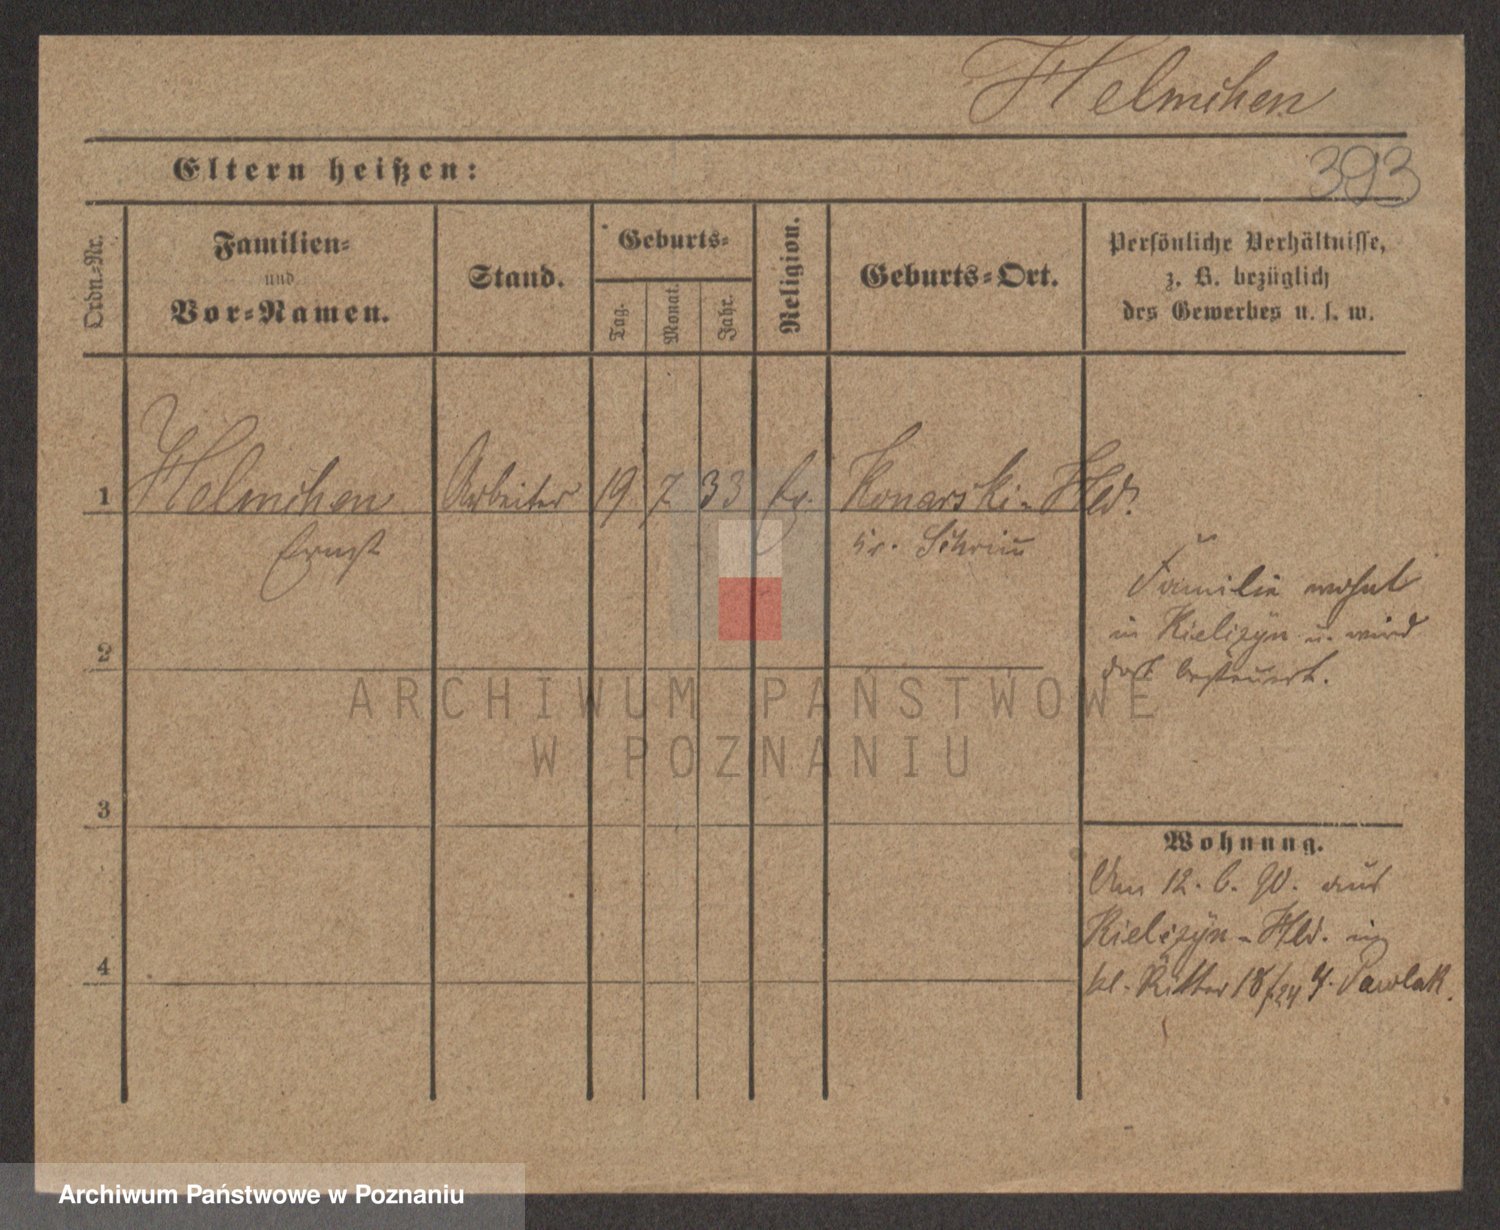 Helmchen
393
Eltern heißen:
Ordn.=Nr.
Familien=
und
Vor=Namen.
Stand.
Geburts=
Tag.
Monat.
Jahr.
Religion.
Geburts=Ort.
Persönliche Verhältnisse,
z. B. bezüglich
des Gewerbes u. s. w.
1 Helmchen Arbeiter 19 7 33 Konarski-Hld.
Ernst Kr. Schrimm
Familie wohnt
in Kieliszyn u. wird
dort besteuert.
2
3
4
Wohnung.
Am 12. 6. 90. aus
Kieliszyn-Hld. in
kl. Ritter 18 Pawlak.
ARCHIWUM PAŃSTWOWE
W POZNANIU
Archiwum Państwowe w Poznaniu